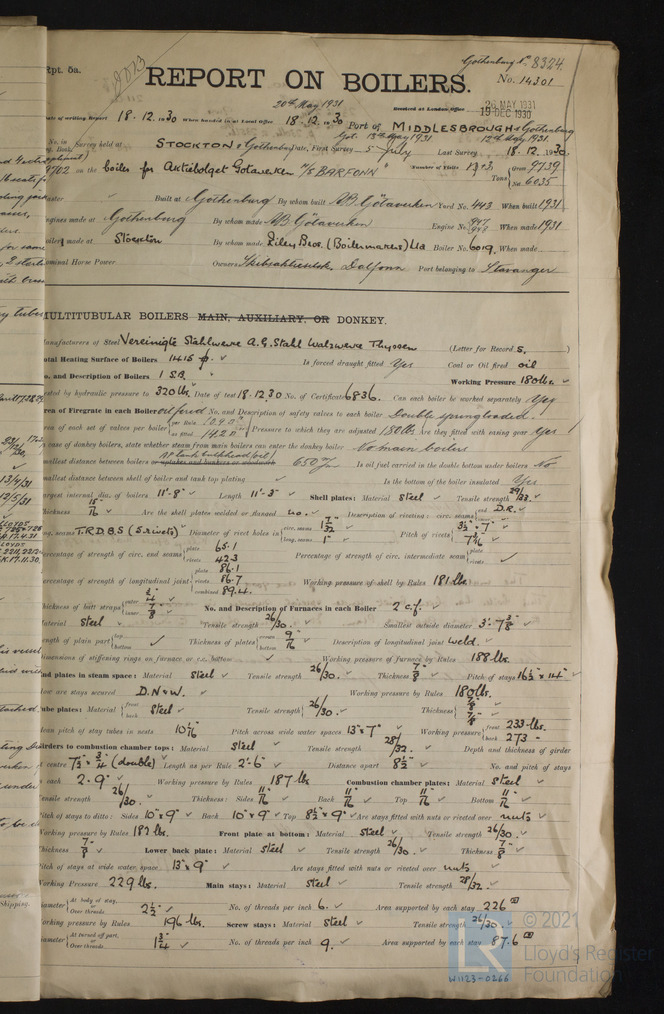 Rpt. 5a.
Gothenburg No. 8324.
REPORT ON BOILERS.
No. 14301
20th May 1931
Received at London Office 26 MAY 1931
19 DEC 1930
Date of writing Report 18.12.30 When handed in at Local Office 18.12.1930 Port of MIDDLESBROUGH & Gothenburg
Got. 13th May 1931 12th May, 1931.
No. in Survey held at STOCKTON & Gothenburg Date, First Survey 5 July Last Survey 18.12.1930.
on the boilers for Aktiebolaget Gotaverken M/S BARFONN Number of Visits 13+3 Gross 9739
Tons Net 6035
Master Built at Gothenburg By whom built AB. Götaverken Yard No. 443 When built 1931
Engines made at Gothenburg By whom made AB. Götaverken Engine No. 947 948 When made 1931
Boilers made at Stockton By whom made Riley Bros. (Boilermakers) Ltd Boiler No. 6019. When made
Nominal Horse Power Owners Skibsaktieselsk. Dalfonn Port belonging to Stavanger
MULTITUBULAR BOILERS MAIN, AUXILIARY, OR DONKEY.
Manufacturers of Steel Vereinigte Stahlwerke A.G. Stahl Walzwerke Thyssen (Letter for Record S.)
Total Heating Surface of Boilers 1415 Is forced draught fitted Yes Coal or Oil fired oil
No. and Description of Boilers 1 S.B. Working Pressure 180 lbs.
Tested by hydraulic pressure to 320 lbs. Date of test 18.12.30 No. of Certificate 6836. Can each boiler be worked separately Yes
Area of Firegrate in each Boiler oil fired No. and Description of safety valves to each boiler Double spring loaded
Area of each set of valves per boiler per Rule 10.9 as fitted 14.2 Pressure to which they are adjusted 180 lbs Are they fitted with easing gear Yes
In case of donkey boilers, state whether steam from main boilers can enter the donkey boiler No main boilers
Smallest distance between boilers or uptakes and bunkers or woodwork 650 Is oil fuel carried in the double bottom under boilers No
Smallest distance between shell of boiler and tank top plating Is the bottom of the boiler insulated Yes
Largest internal dia. of boilers 11'-8" Length 11'-3" Shell plates: Material Steel Tensile strength 29/33.
Thickness 15/16" Are the shell plates welded or flanged no. Description of riveting: circ. seams end D.R.
long. seams T.R.D.B.S (5 rivets) Diameter of rivet holes in circ. seams 1 7/32 long. seams 1" Pitch of rivets 3½ 7" 7 1/16
Percentage of strength of circ. end seams plate 65.1 rivets 42.3 Percentage of strength of circ. intermediate seam plate rivets
Percentage of strength of longitudinal joint plate 86.1 rivets 86.7 combined 89.4. Working pressure of shell by Rules 181 lbs
Thickness of butt straps outer 3/4" inner 7/8 No. and Description of Furnaces in each Boiler 2 c.f.
Material Steel Tensile strength 26/30. Smallest outside diameter 3'-7 3/8"
Length of plain part top bottom Thickness of plates crown bottom 9/16 Description of longitudinal joint weld.
Dimensions of stiffening rings on furnace or c.c. bottom Working pressure of furnace by Rules 188 lbs.
End plates in steam space: Material Steel Tensile strength 26/30. Thickness 7/8 Pitch of stays 16½ x 14"
How are stays secured D.N & W. Working pressure by Rules 180 lbs.
Tube plates: Material front back Steel Tensile strength 26/30. Thickness 7/8 7/8
Mean pitch of stay tubes in nests 10 1/16 Pitch across wide water spaces 13" x 7" Working pressure front 233 lbs. back 273
Girders to combustion chamber tops: Material Steel Tensile strength 28/32. Depth and thickness of girder
at centre 7½ x 3/4 (double) Length as per Rule 2'-6" Distance apart 8½" No. and pitch of stays
in each 2-9" Working pressure by Rules 187 lbs Combustion chamber plates: Material Steel
Tensile strength 26/30. Thickness: Sides 11/16 Back 11/16 Top 11/16 Bottom 11/16
Pitch of stays to ditto: Sides 10" x 9" Back 10" x 9" Top 8½ x 9" Are stays fitted with nuts or riveted over nuts
Working pressure by Rules 182 lbs. Front plate at bottom: Material Steel Tensile strength 26/30.
Thickness 7/8 Lower back plate: Material Steel Tensile strength 26/30. Thickness 7/8
Pitch of stays at wide water space 13" x 9" Are stays fitted with nuts or riveted over nuts
Working Pressure 229 lbs. Main stays: Material Steel Tensile strength 28/32.
Diameter At body of stay, or Over threads 2½" No. of threads per inch 6. Area supported by each stay 226
Working pressure by Rules 196 lbs. Screw stays: Material Steel Tensile strength 26/30.
Diameter At turned off part, or Over threads 1 3/4" No. of threads per inch 9. Area supported by each stay 87.6
© 2021
Lloyd's Register
Foundation
W1123-0266